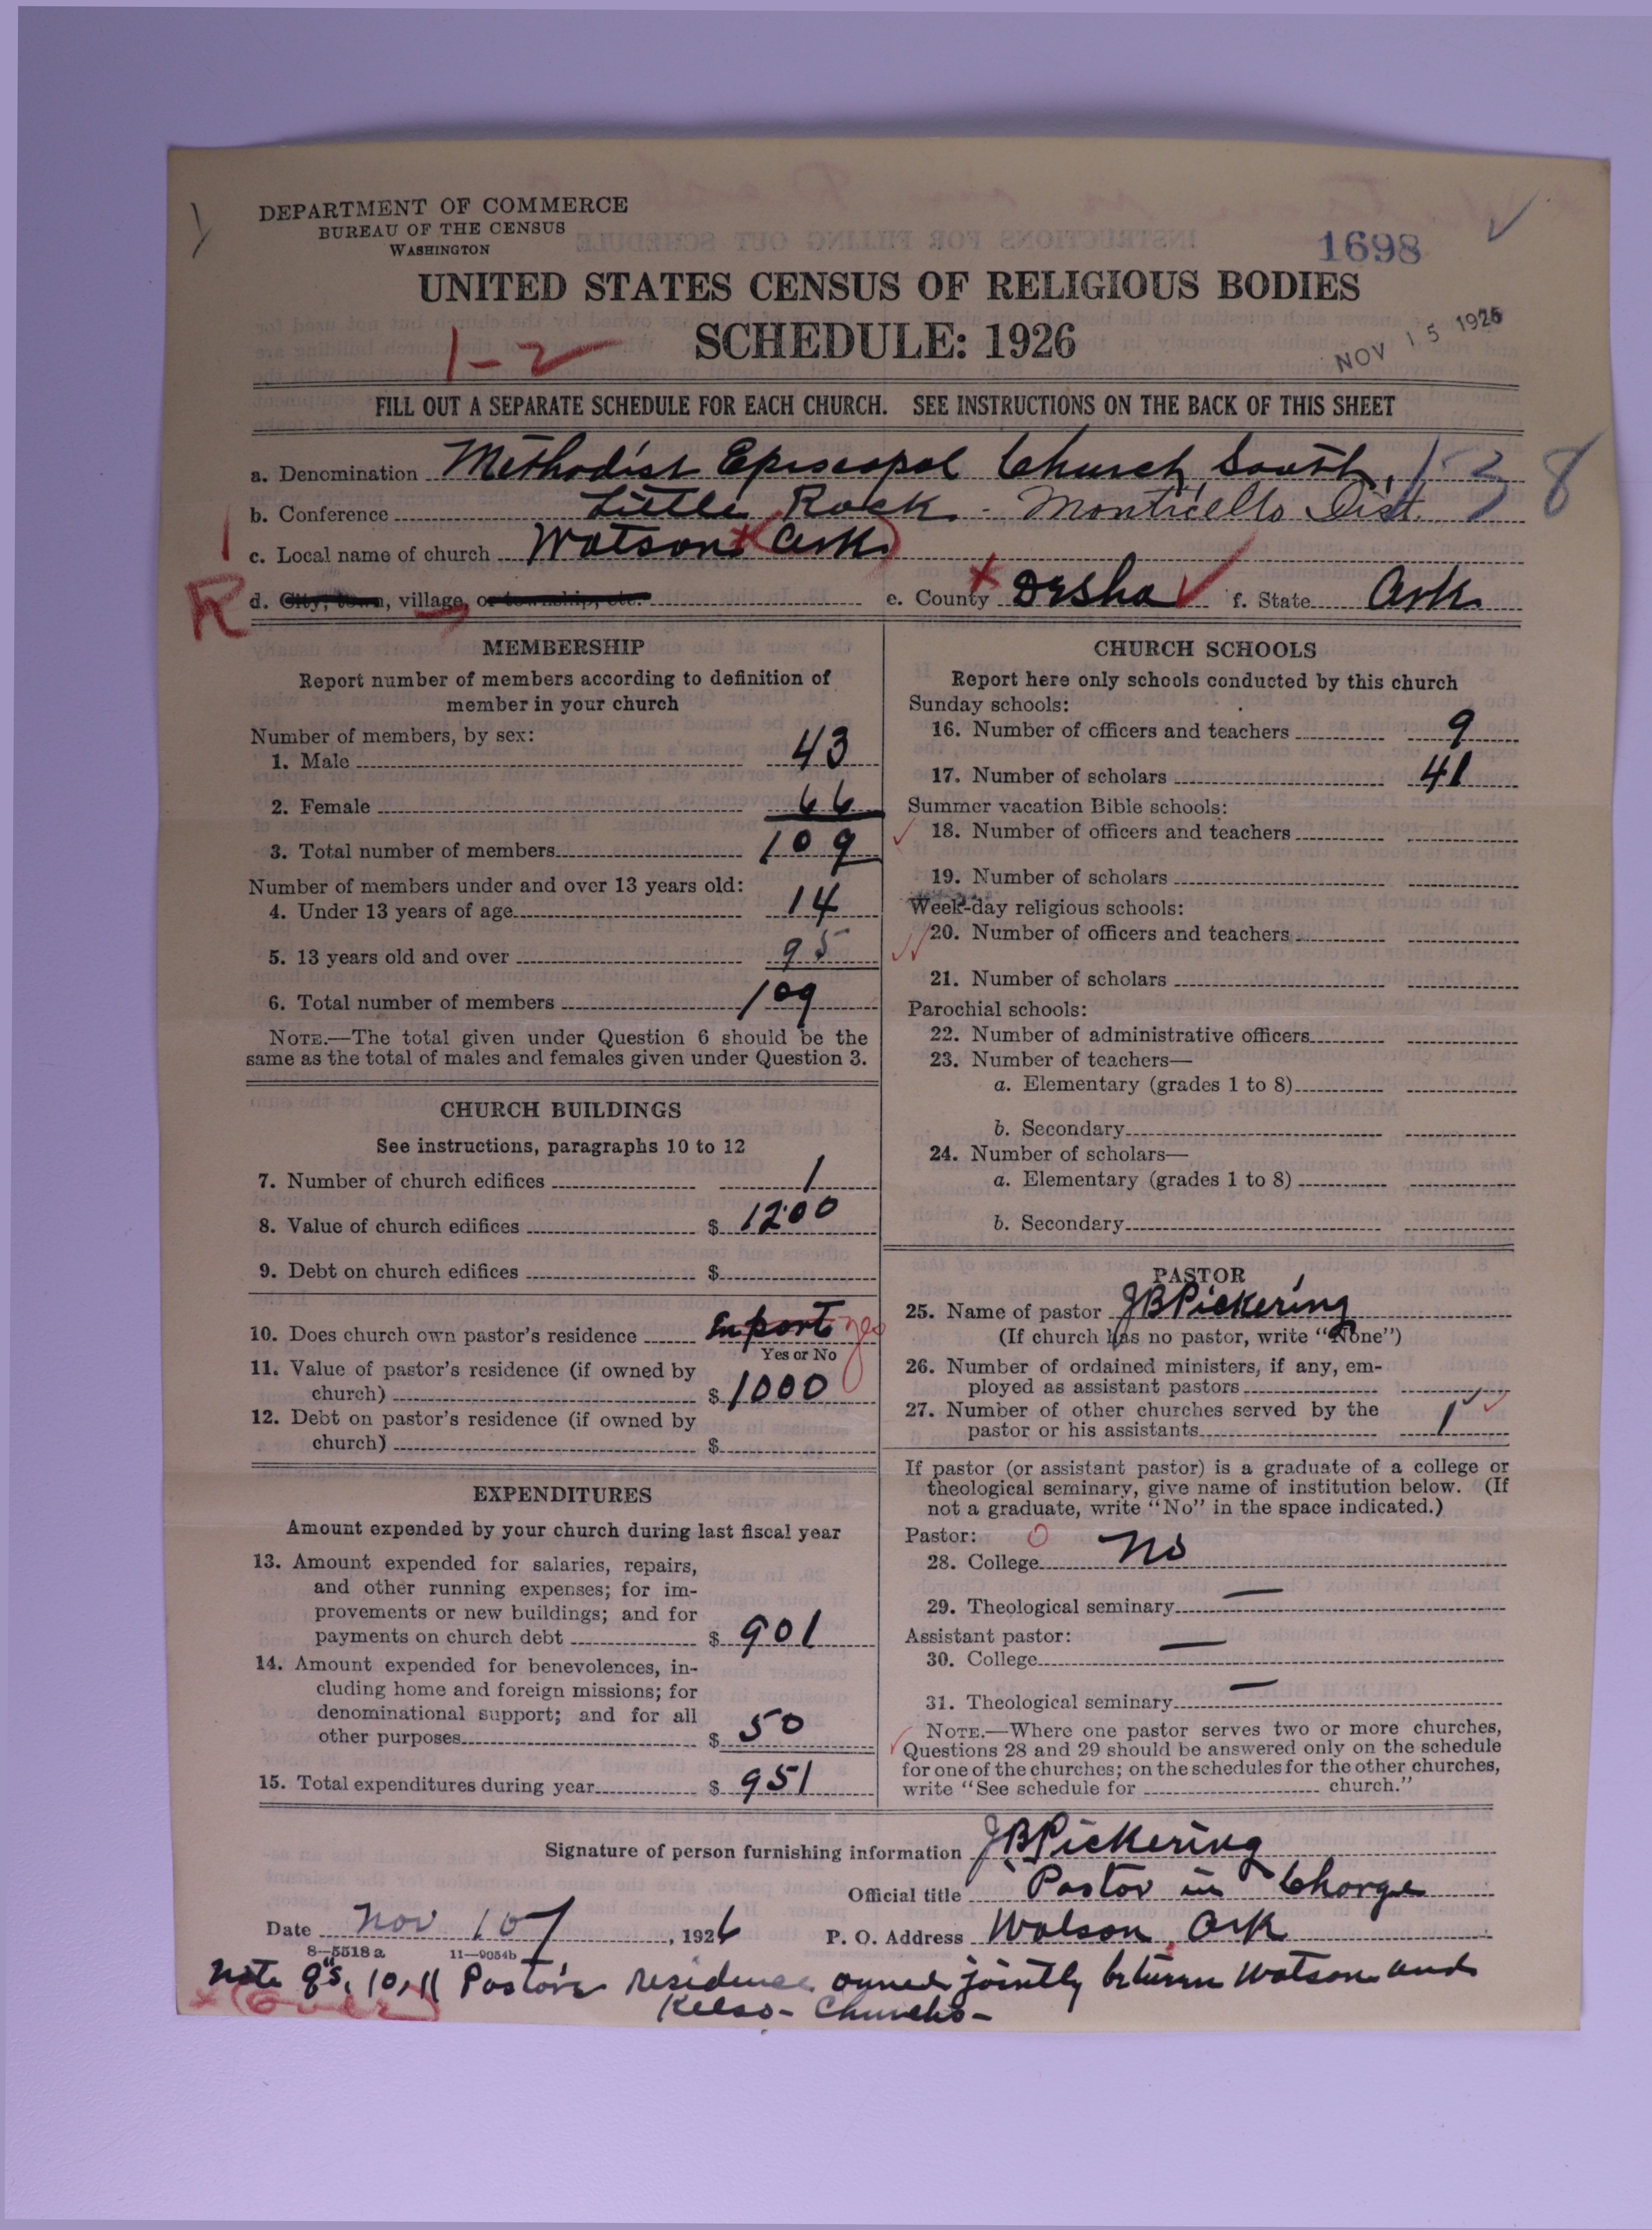 DEPARTMENT OF COMMERCE
BUREAU OF THE CENSUS
WASHINGTON
1698
UNITED STATES CENSUS OF RELIGIOUS BODIES
SCHEDULE: 1926
1-2
NOV 15 1926
FILL OUT A SEPARATE SCHEDULE FOR EACH CHURCH. SEE INSTRUCTIONS ON THE BACK OF THIS SHEET
a. Denomination Methodist Episcopal Church, South, 1-3 8
b. Conference Little Rock - Monticello Dist.
c. Local name of church Watson (Ark)
R d. City, town, village, or township, etc. e. County Desha f. State Ark
MEMBERSHIP
Report number of members according to definition of
member in your church
Number of members, by sex:
1. Male 43
2. Female 66
3. Total number of members 109
Number of members under and over 13 years old:
4. Under 13 years of age 14
5. 13 years old and over 95
6. Total number of members 109
NOTE.—The total given under Question 6 should be the
same as the total of males and females given under Question 3.
CHURCH BUILDINGS
See instructions, paragraphs 10 to 12
7. Number of church edifices 1
8. Value of church edifices $ 1200
9. Debt on church edifices $
10. Does church own pastor's residence In part yes
Yes or No
11. Value of pastor's residence (if owned by
church) $ 1000
12. Debt on pastor's residence (if owned by
church) $
EXPENDITURES
Amount expended by your church during last fiscal year
13. Amount expended for salaries, repairs,
and other running expenses; for im-
provements or new buildings; and for
payments on church debt $ 901
14. Amount expended for benevolences, in-
cluding home and foreign missions; for
denominational support; and for all
other purposes $ 50
15. Total expenditures during year $ 951
CHURCH SCHOOLS
Report here only schools conducted by this church
Sunday schools:
16. Number of officers and teachers 9
17. Number of scholars 41
Summer vacation Bible schools:
18. Number of officers and teachers
19. Number of scholars
Week-day religious schools:
20. Number of officers and teachers
21. Number of scholars
Parochial schools:
22. Number of administrative officers
23. Number of teachers—
a. Elementary (grades 1 to 8)
b. Secondary
24. Number of scholars—
a. Elementary (grades 1 to 8)
b. Secondary
PASTOR
25. Name of pastor J B Pickering
(If church has no pastor, write "None")
26. Number of ordained ministers, if any, em-
ployed as assistant pastors
27. Number of other churches served by the
pastor or his assistants 1
If pastor (or assistant pastor) is a graduate of a college or
theological seminary, give name of institution below. (If
not a graduate, write "No" in the space indicated.)
Pastor: 0
28. College No
29. Theological seminary —
Assistant pastor:
30. College —
31. Theological seminary —
NOTE.—Where one pastor serves two or more churches,
Questions 28 and 29 should be answered only on the schedule
for one of the churches; on the schedules for the other churches,
write "See schedule for church."
Signature of person furnishing information J B Pickering
Official title Pastor in Charge
Date Nov 10, 1926 P. O. Address Watson, Ark
8—5518a 11—9054b
Note q's, 10, 11 Pastor's residence owned jointly between Watson and
x (Over) Kelso - Churches -